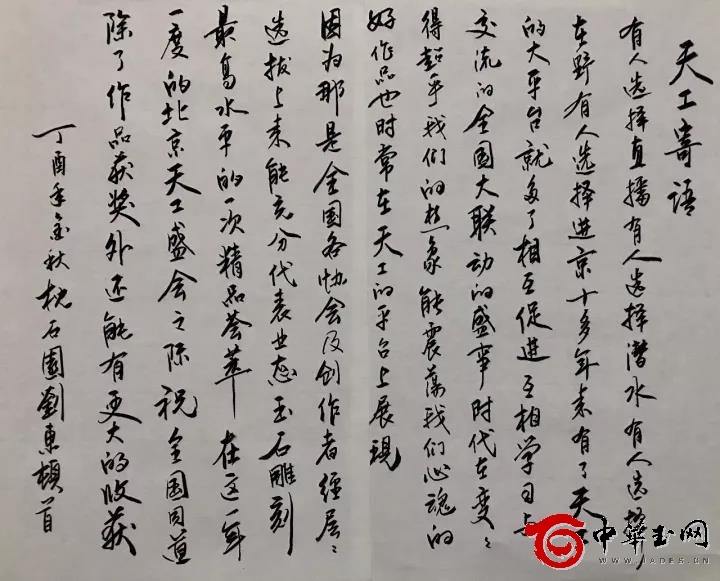 天工寄语
有人选择直播有人选择潜水有人选择
在野有人选择进京十多年来有了天
的大平台就多了相互促进互相学习与
交流的全国大联动的盛事时代在变々
得超乎我们的想象能震荡我们心魂的
好作品也时常在天工的平台上展現
因为那是全国各协会及创作者经层々
选拔上来能充分代表业态玉石雕刻
最高水平的一次精品荟萃 在这一年
一度的北京天工盛会之际祝全国同道
除了作品获奖外还能有更大的收获
丁酉年金秋枕石園劉東頓首
中華玉网
WWW.JADES.CN